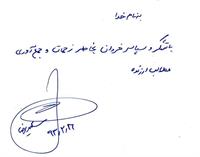 بنام خدا
با تشکر و سپاس فراوان بخاطر زحمات و جمع آوری
مطالب ارزنده
۹۳،۲،۲۲